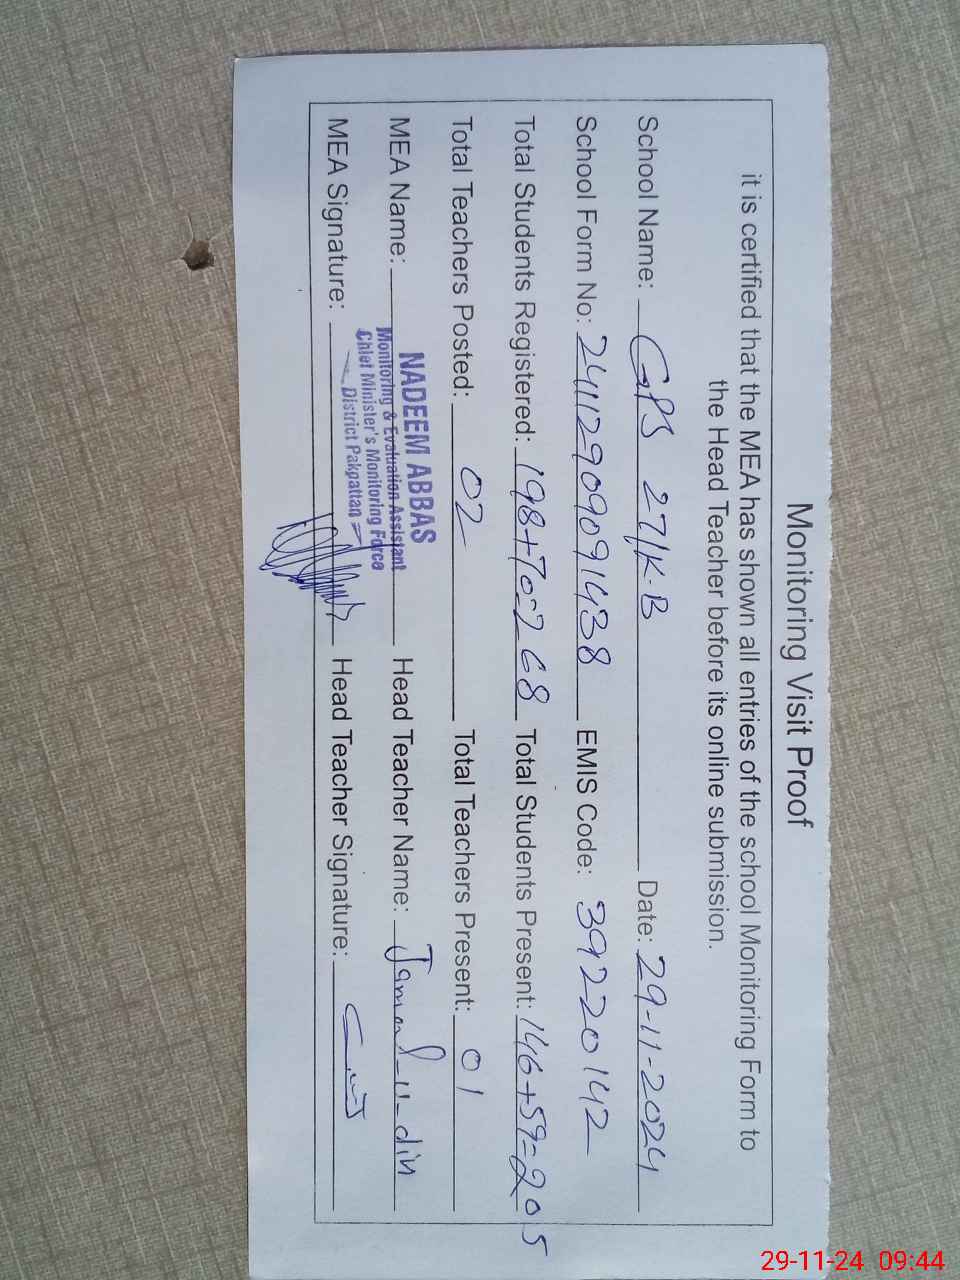 Monitoring Visit Proof
it is certified that the MEA has shown all entries of the school Monitoring Form to
the Head Teacher before its online submission.
School Name: GPS 27/K.B Date: 29-11-2024
School Form No: 24112909091438 EMIS Code: 39220142
Total Students Registered: 198+70=268 Total Students Present: 146+59=205
Total Teachers Posted: 02 Total Teachers Present: 01
MEA Name: NADEEM ABBAS Head Teacher Name: Jamal-u-din
Monitoring & Evaluation Assistant
Chief Minister's Monitoring Force
District Pakpattan
MEA Signature: Head Teacher Signature:
29-11-24 09:44